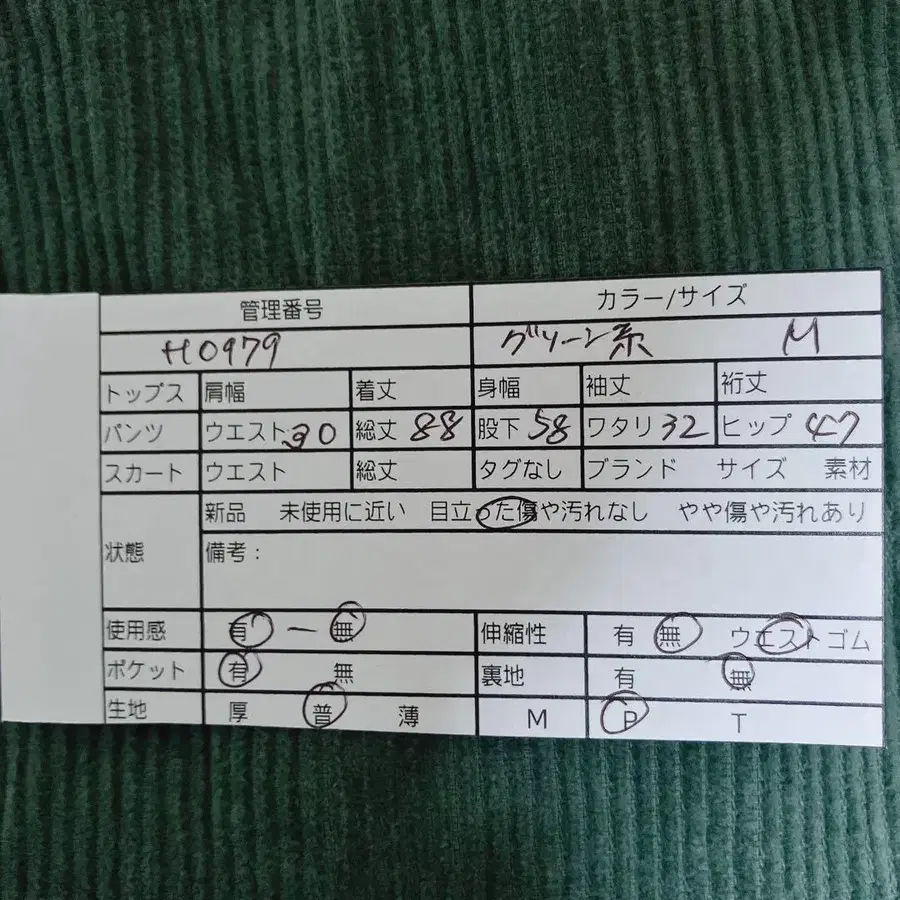 管理番号 カラー/サイズ
H0979 グリーン系 M
トップス 肩幅 着丈 身幅 袖丈 裄丈
パンツ ウエスト 30 総丈 88 股下 58 ワタリ 32 ヒップ 47
スカート ウエスト 総丈 タグなし ブランド サイズ 素材
新品 未使用に近い 目立った傷や汚れなし やや傷や汚れあり
状態 備考：
使用感 有 ー 無 伸縮性 有 無 ウエストゴム
ポケット 有 無 裏地 有 無
生地 厚 普 薄 M P T